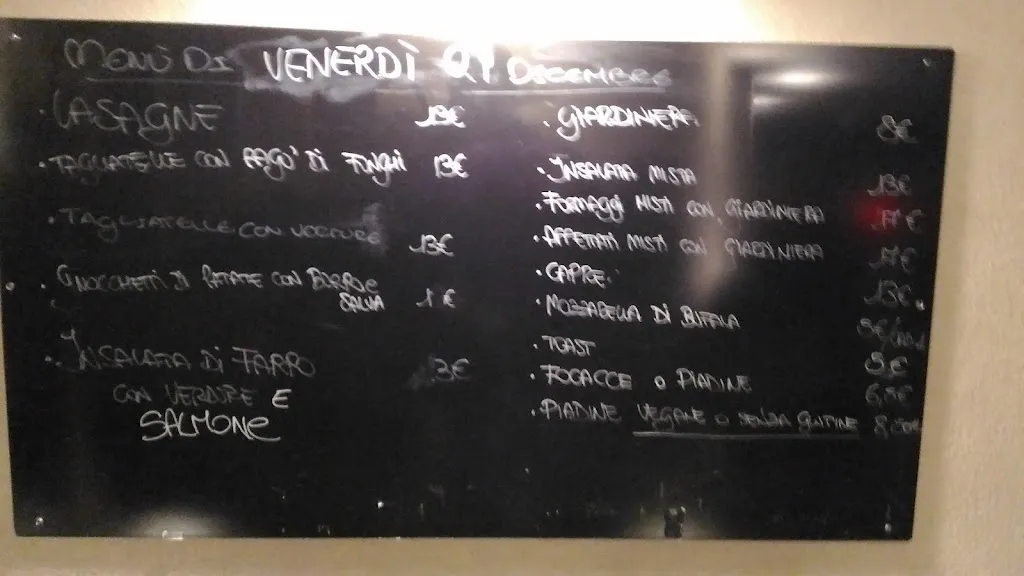 Menù Di VENERDÌ 21 DICEMBRE
• LASAGNE 13€
• TAGLIATELLE CON RAGU' DI FUNGHI 13€
• TAGLIATELLE CON VERDURE 13€
• GNOCCHETTI DI PATATE CON BURRO e
SALVIA €
• INSALATA DI FARRO 13€
CON VERDURE E
SALMONE
• GIARDINIERA 8€
• INSALATA MISTA 13€
• FORMAGGI MISTI CON GIARDINIERA €
• AFFETTATI MISTI CON GIARDINIERA €
• CAPRE 13€
• MOZZARELLA DI BUFALA
• TOAST
• FOCACCE o PIADINE
• PIADINE VEGANE O SENZA GLUTINE